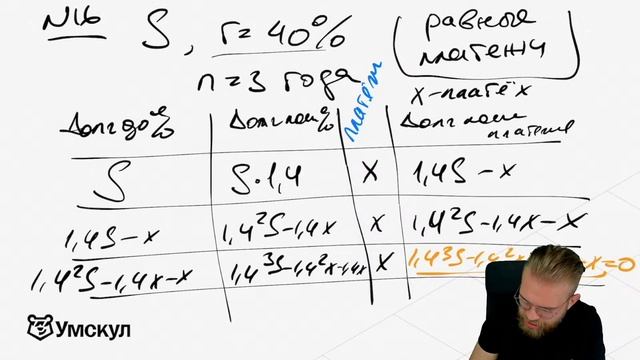 N16 S, r=40% равные
n=3 года платежи
x-платёж
Долг до % Долг после % платёж Долг после платежа
S S·1,4 x 1,4S-x
1,4S-x 1,4²S-1,4x x 1,4²S-1,4x-x
1,4²S-1,4x-x 1,4³S-1,4²x-1,4x x 1,4³S-1,4²x -x=0
Умскул